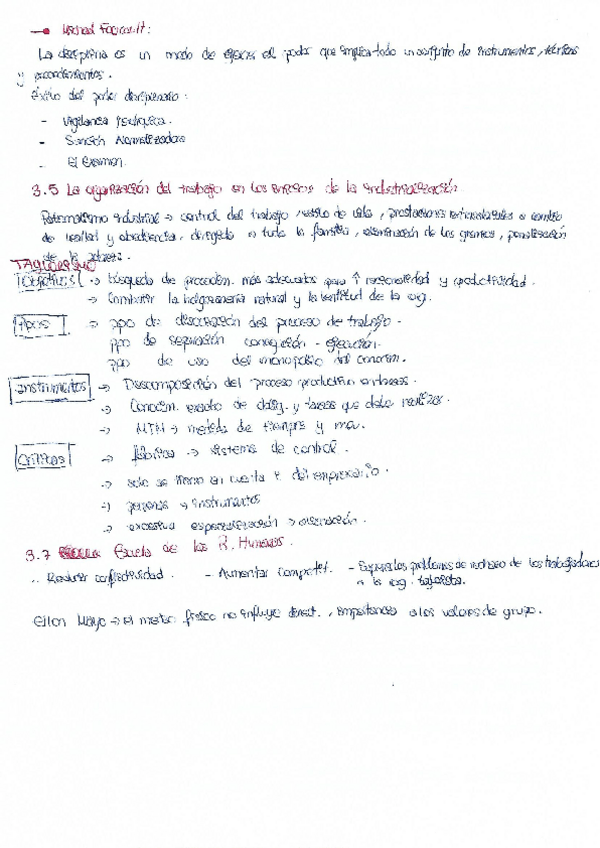 → Michael Foucault:
La disciplina es un modo de ejercer el poder que implica todo un conjunto de instrumentos, técnicas
y procedimientos.
Éxito del poder disciplinario:
- Vigilancia jerárquica.
- Sanción Normalizadora
- El Examen.
3.5 La organización del trabajo en los inicios de la industrialización
Paternalismo industrial → control del trabajo, estilo de vida, prestaciones extrasalariales a cambio
de lealtad y obediencia, dirigido a toda la familia, eliminación de los gremios, penalización
de la pobreza.
TAYLORISMO
Objetivos → búsqueda de procedim. más adecuados para ↑ racionalidad y productividad.
→ Combatir la holgazanería natural y la lentitud de la org.
→ ppo de disociación del proceso de trabajo.
ppo de separación concepción - ejecución.
ppo de uso del monopolio del conocim.
Instrumentos → Descomposición del proceso productivo en fases.
→ Conocim. exacto de oblig. y tareas que debe realizar.
→ MTM → medida de tiempos y mov.
Críticas → fábrica → sistema de control.
→ solo se tiene en cuenta del empresario.
→ personas → instrumentos
→ excesiva especialización → alienación.
3.7 Escuela de las R. Humanas.
- Reducir conflictividad. - Aumentar competit. - Superar los problemas de rechazo de los trabajadores
a la org. taylorista.
Elton Mayo → el medio físico no influye direct., importancia a los valores de grupo.